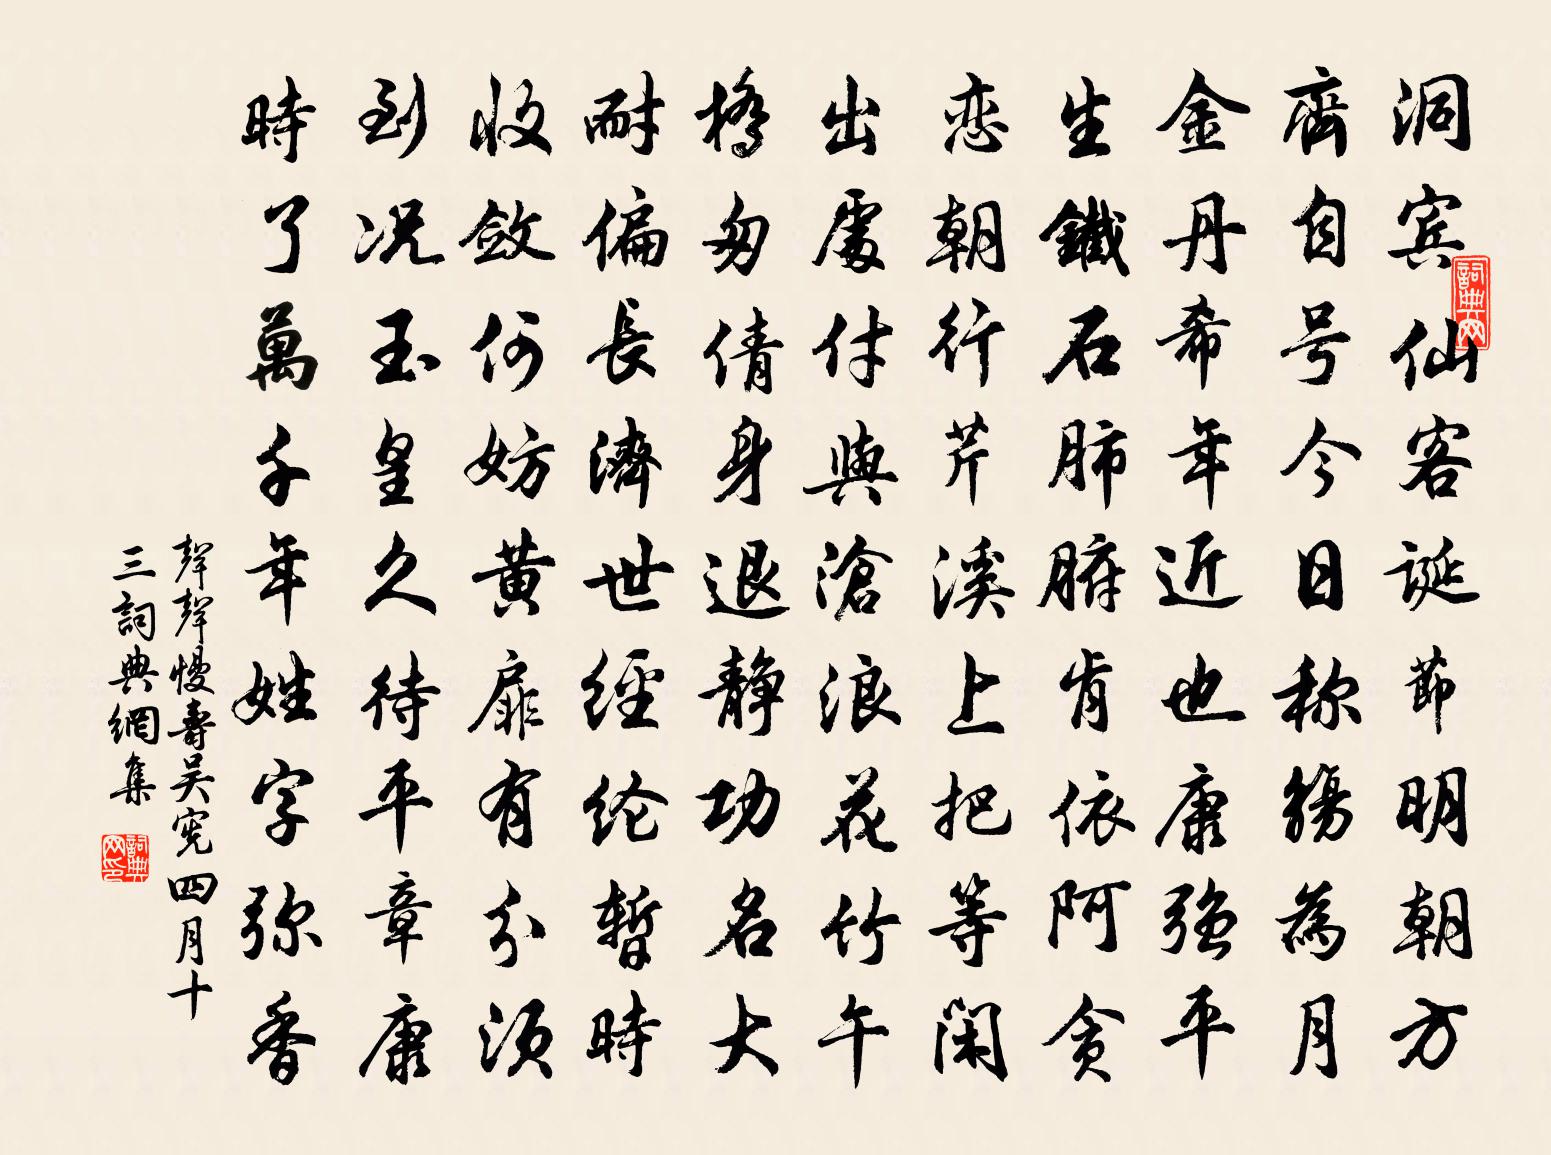 洞宾仙客诞節明朝方
齊自号今日称觴為月
金丹希年近也康强平
生鐵石肺腑肯依阿贪
恋朝行芹溪上把等閑
出處付與滄浪花竹午
橋匆倩身退静功名大
耐偏長濟世經纶暫時
收斂何妨黄扉有分须
到况玉皇久待平章康
時了萬千年姓字弥香
聲聲慢壽吴宪四月十
三詞典網集
詞典网
詞典网印